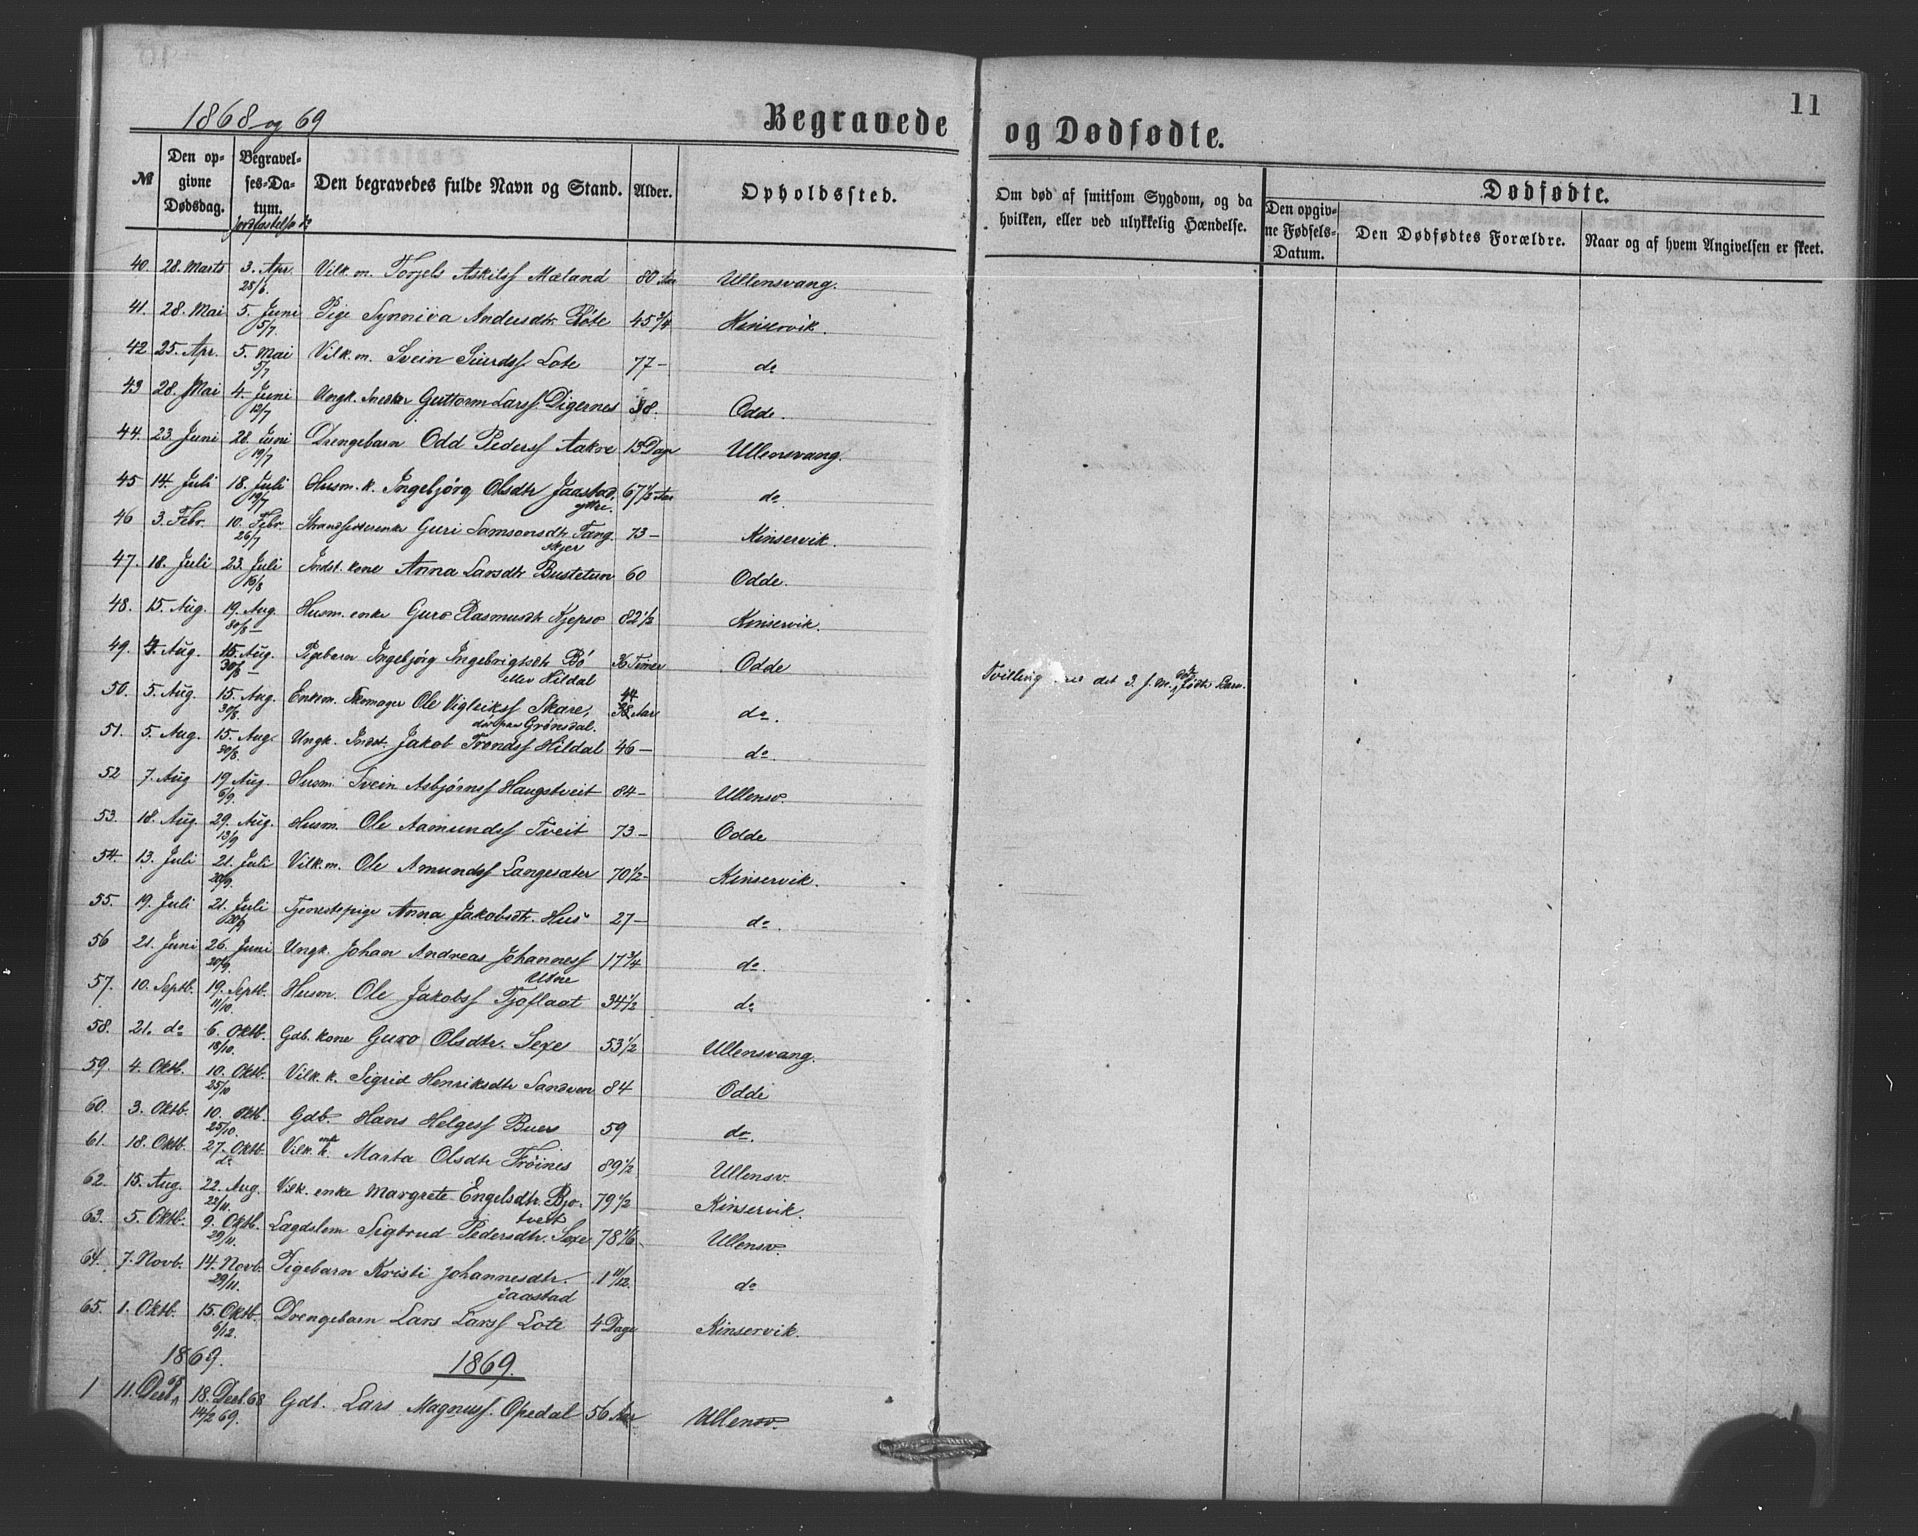 11
1868 og 69
Begravede og Dødfødte.
№
Den opgivne Dødsdag.
Begravelses-Datum.
Jordfæstelse
Den begravedes fulde Navn og Stand.
Alder.
Opholdssted.
Om død af smitsom Sygdom, og da hvilken, eller ved ulykkelig Hændelse.
Dødfødte.
Den opgivne Fødsels-Datum.
Den Dødfødtes Forældre.
Naar og af hvem Angivelsen er skeet.
40. 28. Marts 3. Apr. 28/6. Vilk.m. Torjels Askilsf Mæland 80 Aar Ullensvang.
41. 28. Mai 5. Juni 5/7. Pige Synniva Andersdtr. Røte 45 3/4 Kinservik.
42 25. Apr. 5. Mai 5/7 Vilk.m. Svein Siurdsf. Lote 77- do
43 28. Mai 4. Juni 12/7 Ungk. Guttorm Larsf. Digernes 38. Odde.
44. 23. Juni 28. Juni 19/7 Drengebarn Odd Pedersf Aakre 13 Dage Ullensvang.
45 14. Juli 18. Juli 19/7 Husm. k. Ingebjørg Olsdtr Jaastad, ytre. 67 1/3 Aar do.
46 3. Febr. 10. Febr. 26/7 Guri Samsonsdtr Tangskjer 73- Kinservik.
47. 18. Juli 23. Juli 16/8 Indst. kone Anna Larsdtr Bustetun 60 Odde.
48. 15. Aug. 19. Aug. 30/8 - Husm. enke Guro Rasmusdtr Kjepso 82 1/3 Kinservik.
49. 4. Aug. 15. Aug. 30/8 - Pigebarn Ingebjørg Ingebrigtsdtr Bó eller Hildal 36 Timer Odde Tvilling det 3. f. M. dødfødte Barn.
50. 5. Aug. 15. Aug. 30/8. Enkem. Skomager Ole Vigleiksf Skare, Grønsdal. 44 Aar do.
51. 5. Aug. 15. Aug. 30/8. Ungk. Indst. Jakob Trondsf Hildal 46- do.
52 7. Aug 19 Aug. 6/9. Husm. Svein Asbjørnsf Haugstveit 84- Ullensv.
53. 18. Aug. 29. Aug. 13/9 Husm. Ole Aamundsf Tveit 73- Odde
54. 13. Juli 21. Juli 20/9. Vilk.m. Ole Amundsf Langesæter 70 1/2- Kinservik.
55. 19. Juli 21. Juli 20/9 Tjenestepige Anna Jakobsdtr. Hus 27- do.
56 21. Juni 26. Juni 20/9. Ungk. Johan Andreas Johannesf Utne 17 3/4 do.
57. 10. Septb. 19. Septb. 11/10. Husm. Ole Jakobsf Tjoflaat 34 1/2 do
58. 21. do 6. Oktb. 18/10. Gdb. kone Guro Olsdtr. Sexe 53 1/2 Ullensvang.
59 4. Oktb. 10. Oktb. 25/10 Vilk. k. Sigrid Henriksdtr Sandven 84 Odde
60. 3. Oktb. 10. Oktb. 25/10. Gdb. Hans Helgesf Buer 59 do.
61. 18. Oktb. 27. Oktb. do Vilk. enk. Marta Olsdtr Frøines 89 1/2 Ullensv.
62. 15. Aug. 22. Aug. 22/11. Vilk. enke Margrete Engelsdtr. Bjotveit 79 1/2 Kinservik.
63. 5. Oktb. 9. Oktb. 29/11. Lagdslem Sigtrud Pedersdtr. Sexe 78 1/6- Ullensv.
64. 7. Novb. 14. Novb. 29/11. Pigebarn Kristi Johannesdtr. Jaastad 1 11/12. do
65. 1. Oktb. 15. Oktb. 6/12. Drengebarn Lars Larsf Lote 4 Dage Kinservik.
1869. 1869.
1 11. Decb. 68 18. Decb. 68 14/2 69. Gdb. Lars Magnusf. Opedal 56 Aar Ullensv.